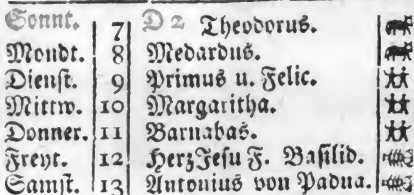 Sonnt. 7 D 2 Theodorus.
Mondt. 8 Medardus.
Dienst. 9 Primus u. Felic.
Mittw. 10 Margaritha.
Donner. 11 Barnabas.
Freyt. 12 Herz Jesu F. Basilid.
Samst. 13 Antonius von Padua.